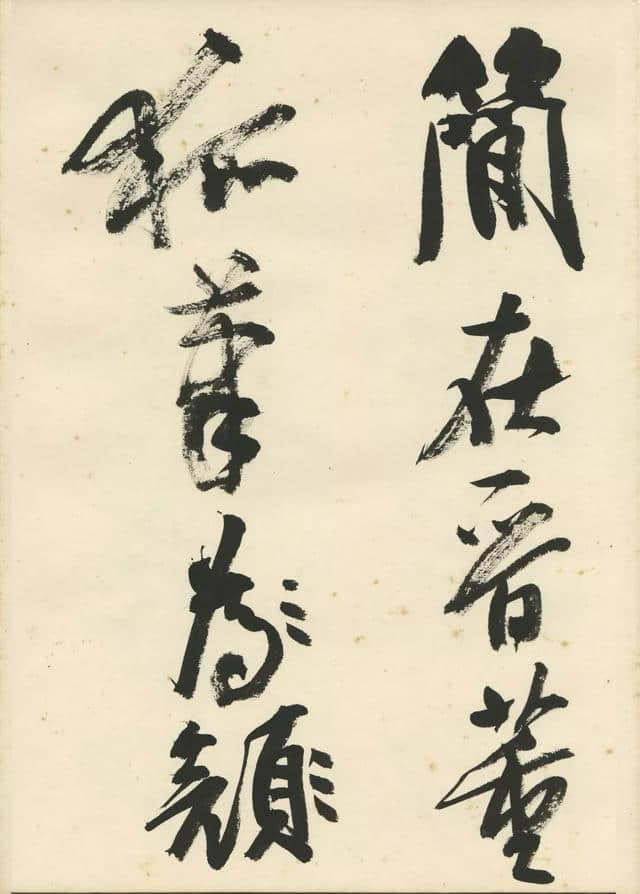 簡在晉董
狐筆為顏